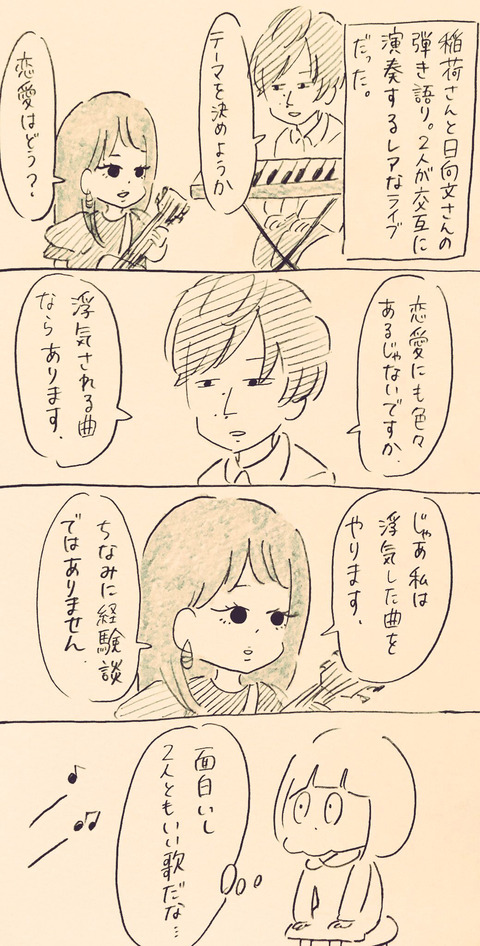 稲荷さんと日向文さんの
弾き語り。2人が交互に
演奏するレアなライブ
だった。
テーマを決めようか
恋愛はどう？
恋愛にも色々
あるじゃないですか.
浮気される曲
なら あります.
じゃあ 私は
浮気した曲を
やります.
ちなみに経験談
ではありません.
面白いし
2人ともいい歌だな…